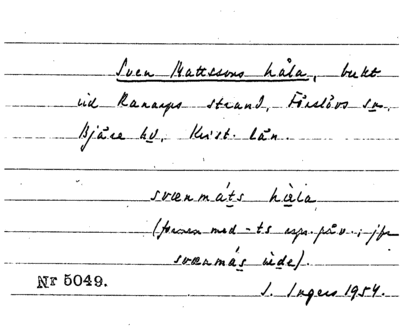 Sven Mattssons håla, bukt
vid Ranarps strand, Förslövs sn,
Bjäre hd, Krist. län.
svænmáts hå̀la
(formen med -ts esp. påv.; jfr
svænmás ùde).
Nr 5049.
I. Ingers 1954.